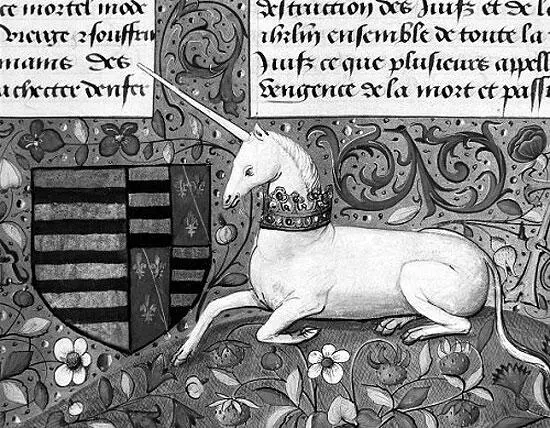 ce mortel mode
Vierge r souffrir
mains des
achecter denfer
destruction des Juifz et de la
ihrlm ensemble de toute la
Juifz ce que plusieurs appell
vengence de la mort et passi